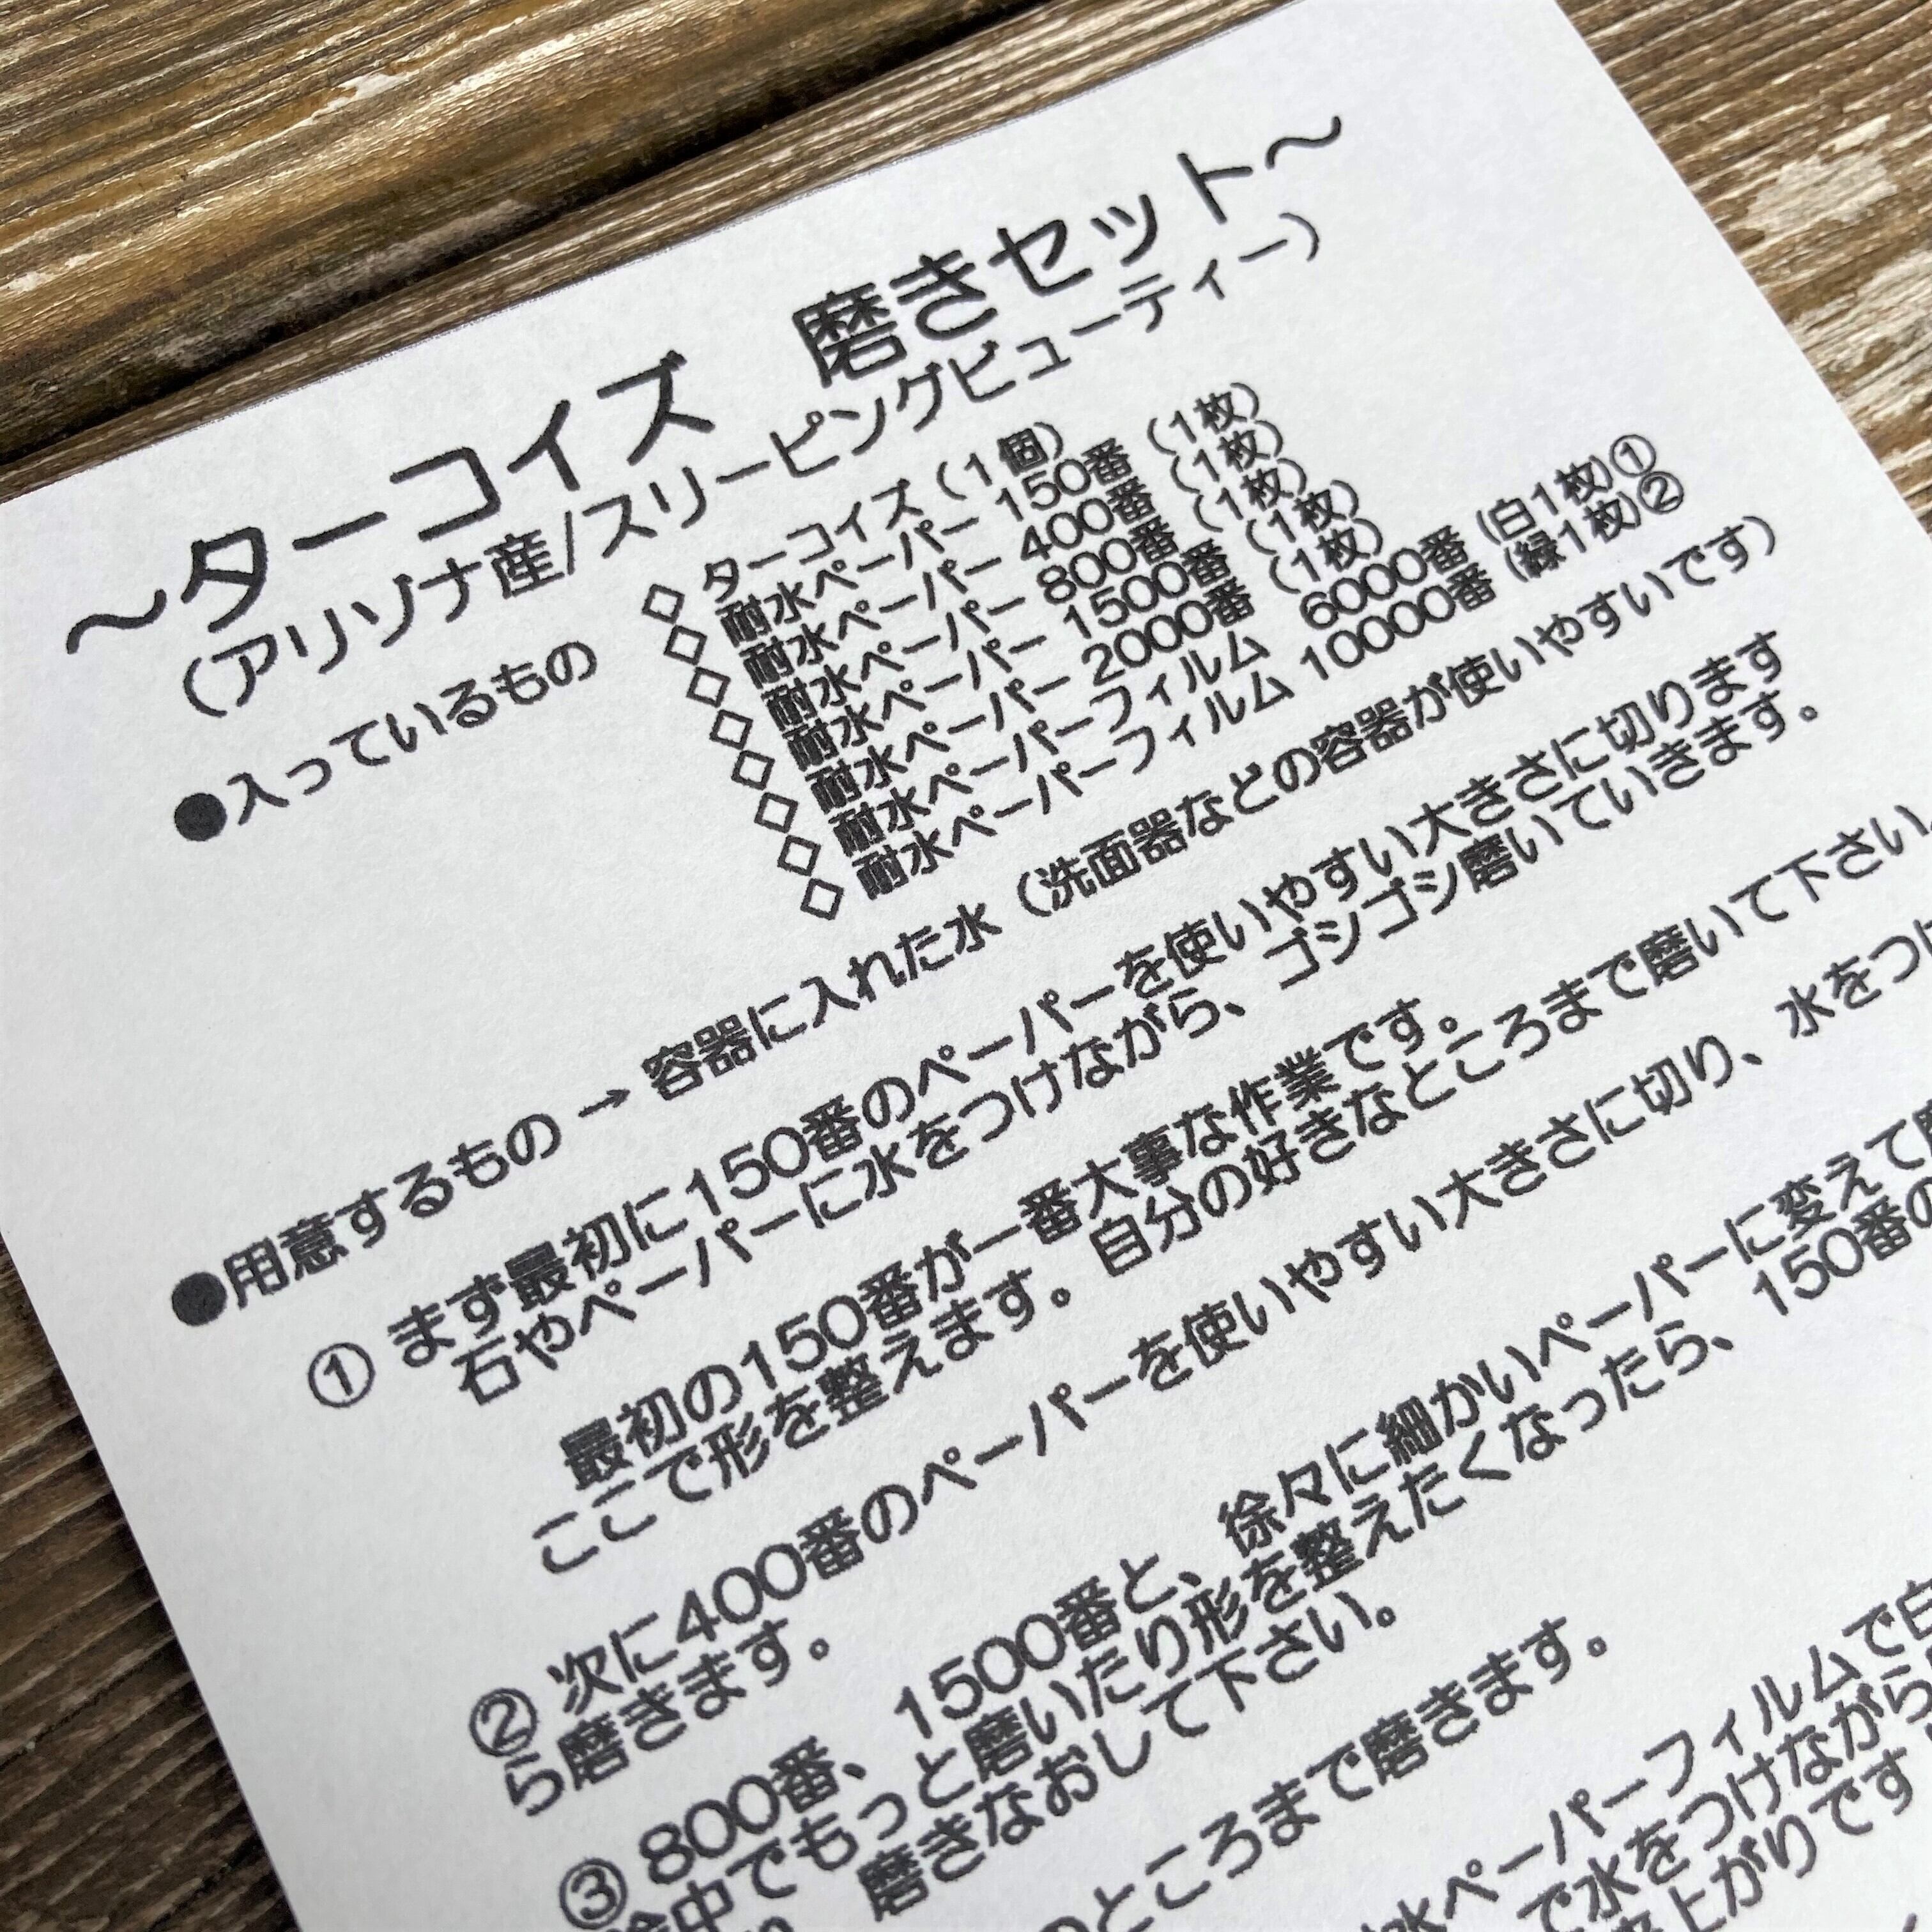 ～ターコイズ　磨きセット～
（アリゾナ産/スリーピングビューティー）
●入っているもの
◇ ターコイズ（１個）
◇ 耐水ペーパー 150番 （１枚）
◇ 耐水ペーパー 400番 （１枚）
◇ 耐水ペーパー 800番 （１枚）
◇ 耐水ペーパー 1500番 （１枚）
◇ 耐水ペーパー 2000番 （１枚）
◇ 耐水ペーパーフィルム 6000番（白１枚）①
◇ 耐水ペーパーフィルム 10000番（緑１枚）②
●用意するもの → 容器に入れた水（洗面器などの容器が使いやすいです）
① まず最初に150番のペーパーを使いやすい大きさに切ります
石やペーパーに水をつけながら、ゴシゴシ磨いていきます。
最初の150番が一番大事な作業です。
ここで形を整えます。自分の好きなところまで磨いて下さい。
② 次に400番のペーパーを使いやすい大きさに切り、水をつけ
ら磨きます。
③ 800番、1500番と、徐々に細かいペーパーに変えて
途中でもっと磨いたり形を整えたくなったら、150番の
磨きなおして下さい。
のところまで磨きます。
水ペーパーフィルムで白
で水をつけながら
上がりです